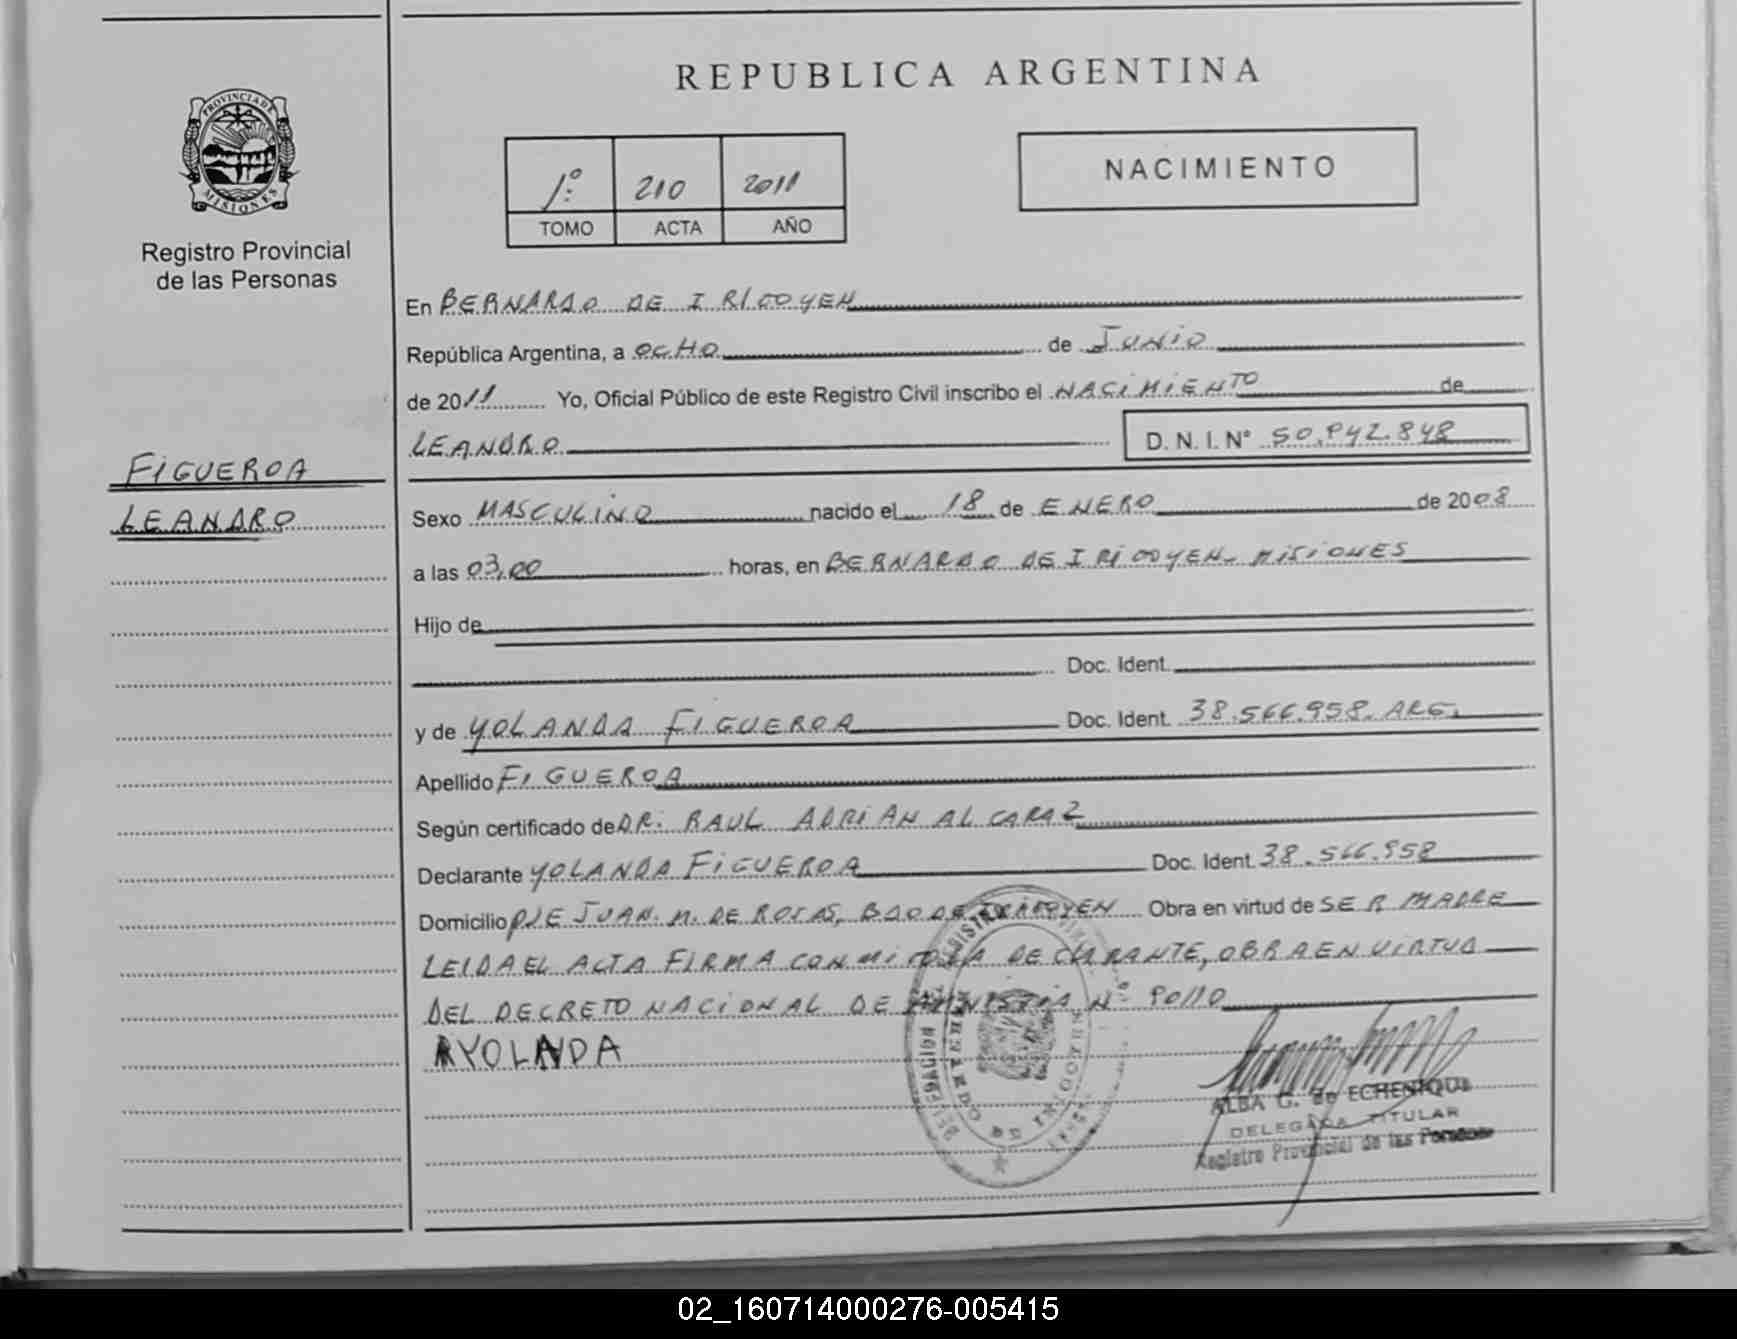 REPUBLICA ARGENTINA
PROVINCIA DE
MISIONES
Registro Provincial
de las Personas
1º 210 2011
TOMO ACTA AÑO
NACIMIENTO
En BERNARDO DE IRIGOYEN
República Argentina, a OCHO de JUNIO
de 2011 Yo, Oficial Público de este Registro Civil inscribo el NACIMIENTO de
LEANDRO D. N. I. Nº
FIGUEROA
LEANDRO
Sexo MASCULINO nacido el 18 de ENERO de 2008
a las 03,00 horas, en BERNARDO DE IRIGOYEN- MISIONES
Hijo de
Doc. Ident.
y de YOLANDA FIGUEROA Doc. Ident. 38.566.958. ARG.
Apellido FIGUEROA
Según certificado de DR. RAUL ADRIAN ALCARAZ
Declarante YOLANDA FIGUEROA Doc. Ident. 38.566.958
Domicilio PJE JUAN. M. DE ROSAS, BDO DE IRIGOYEN Obra en virtud de SER MADRE
LEIDA EL ACTA FIRMA CONMIGO LA DECLARANTE, OBRA EN VIRTUD
DEL DECRETO NACIONAL DE AMNISTIA Nº 90/10
YOLANDA
ALBA G. de ECHENIQUE
DELEGADA TITULAR
Registro Provincial de las Personas
02_160714000276-005415